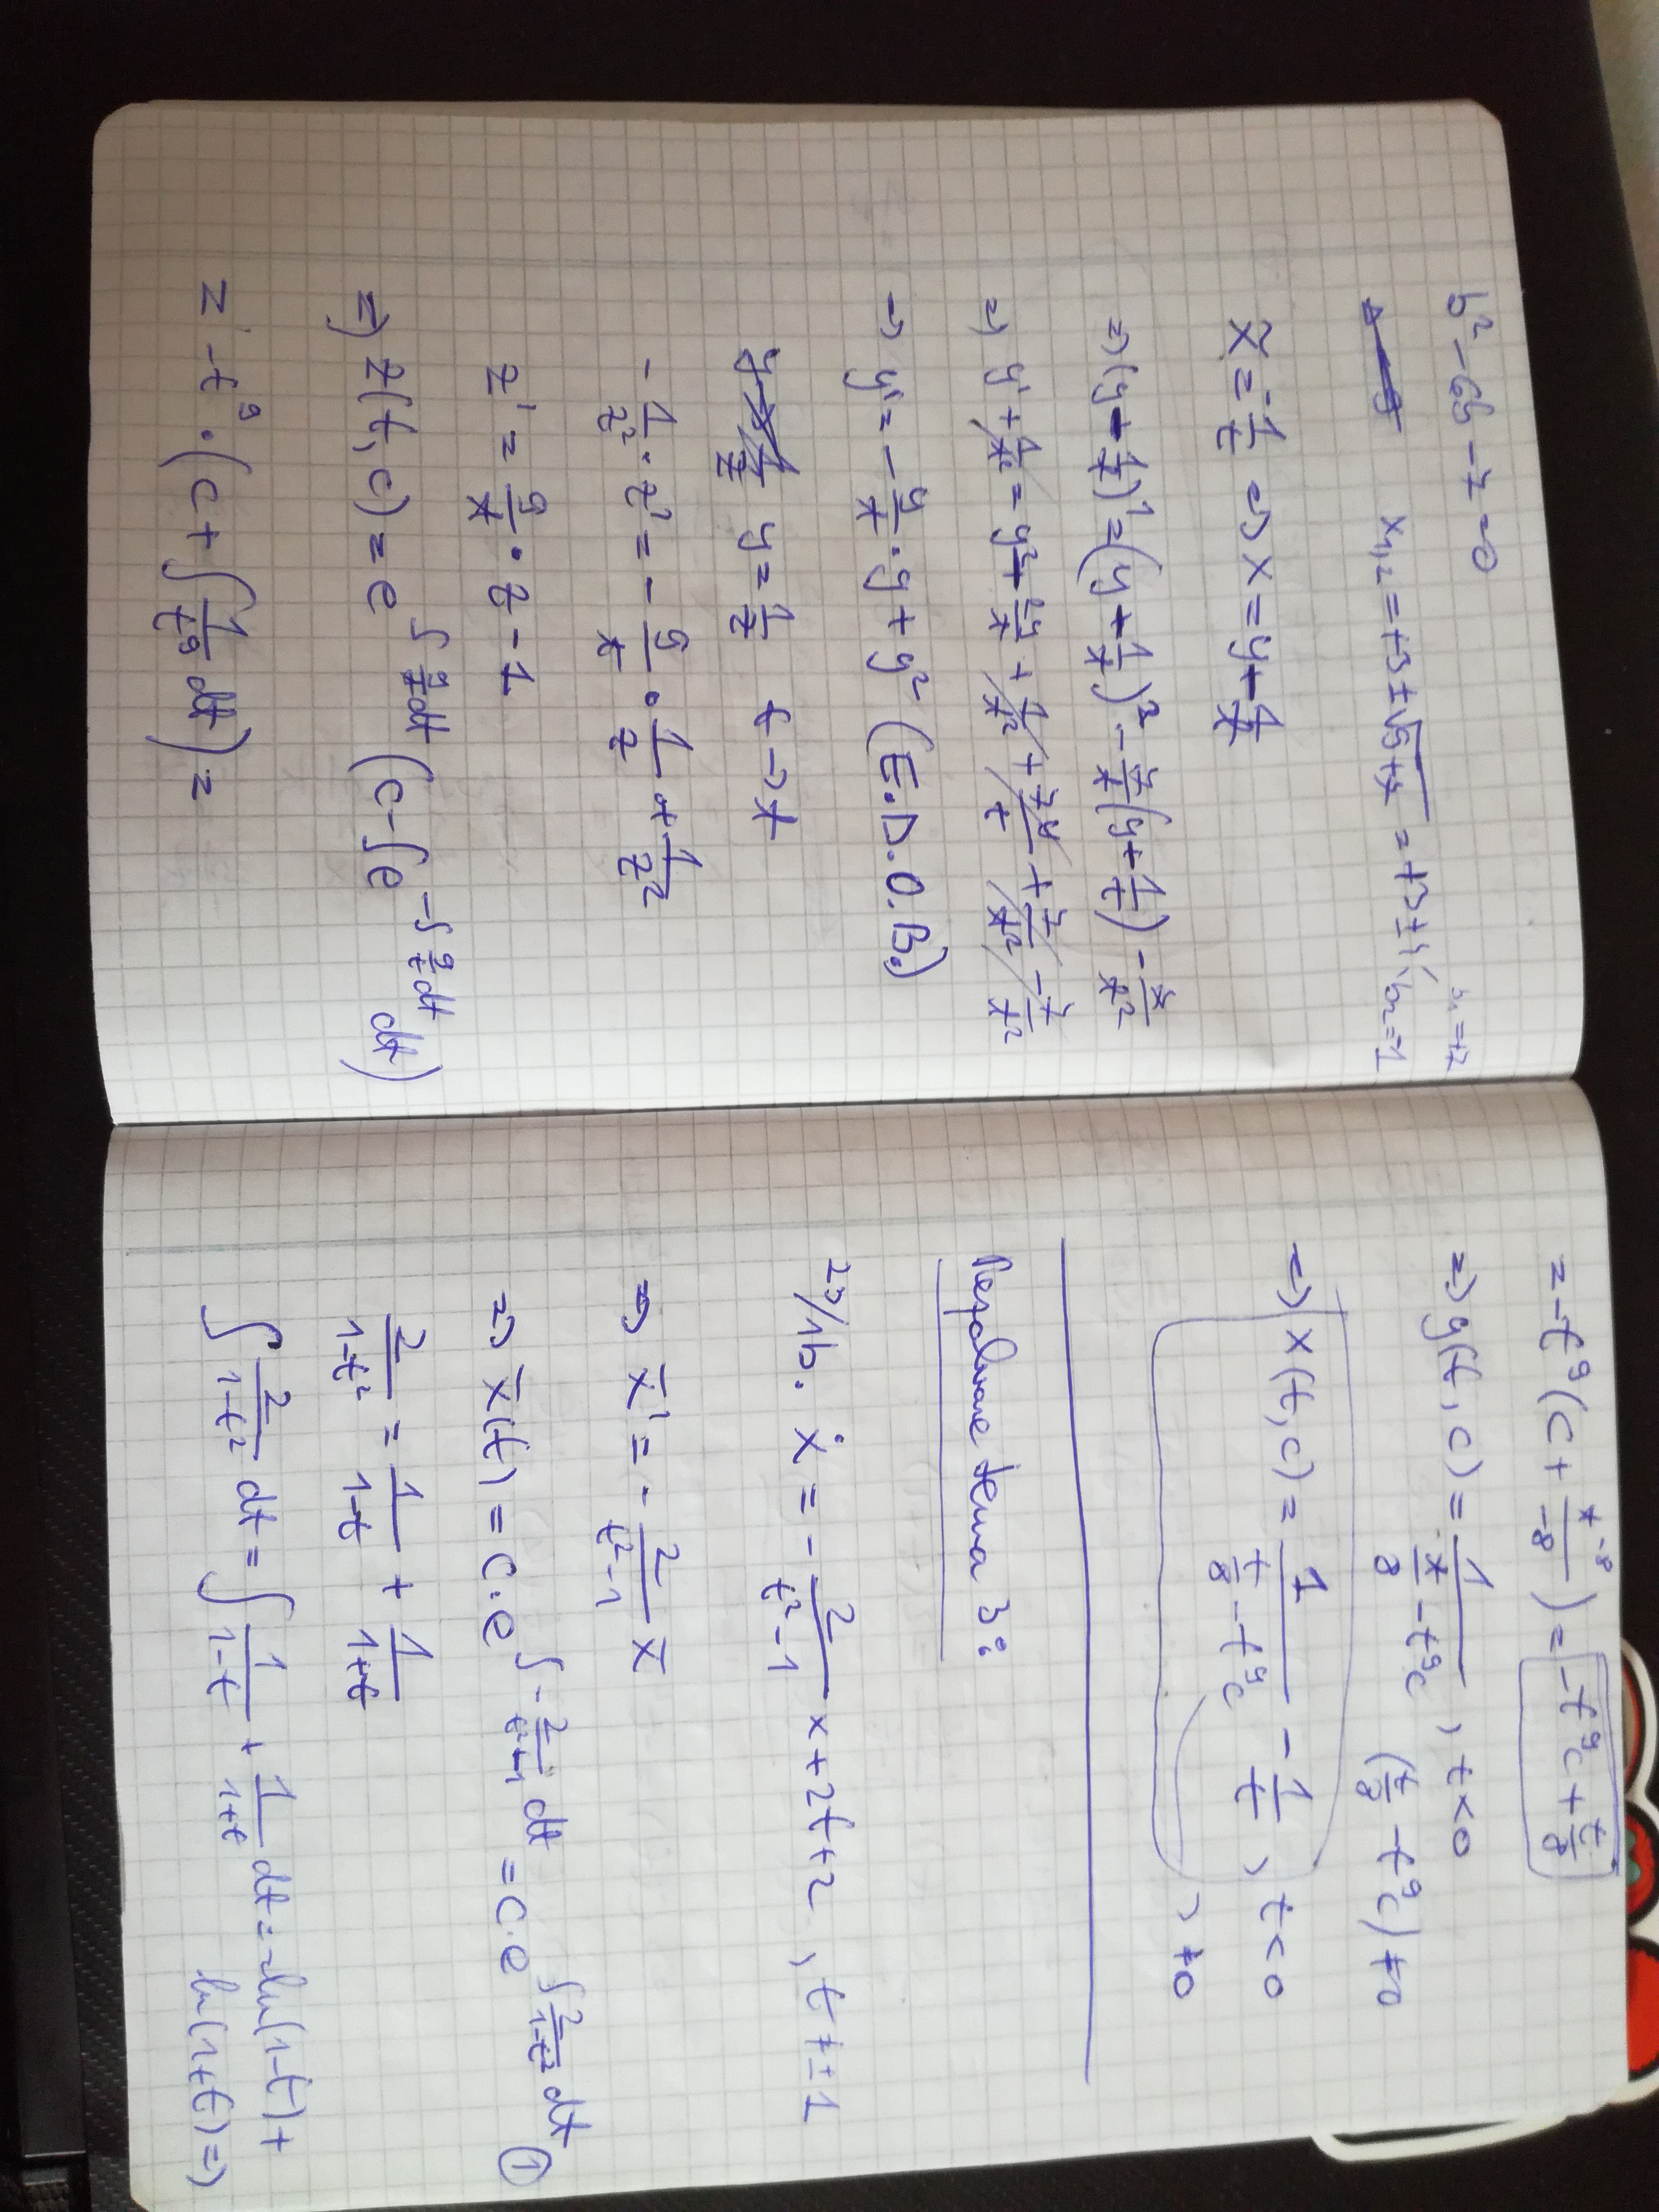 b² - 6b - 7 = 0
x₁,₂ = +3 ± √9+7 = +3 ± 4 b₁ = +7
b₂ = -1
x̃ = -1/t => x = y - 1/t
=> (y - 1/t)' = (y + 1/t)² - 7/t (y + 1/t) - 7/t²
=> y' + 1/t² = y² + 2y/t + 1/t² + 7y/t + 7/t² - 7/t²
=> y' = - 9/t · y + y² (E.D.O.B.)
y = 1/z t -> x
- 1/z² · z' = - 9/t · 1/z + 1/z²
z' = 9/t · z - 1
=> z(t, c) = e^∫9/t dt (c - ∫e^-∫9/t dt dt)
z' - t⁹ · (c + ∫ 1/t⁹ dt) =
= -t⁹ (c + t⁻⁸/-8) = -t⁹c + t/8
=> y(t, c) = 1/(t/8 - t⁹c) , t<0 (t/8 - t⁹c) ≠ 0
=> x(t, c) = 1/(t/8 - t⁹c) - 1/t , t<0
, ≠0
Rezolvare tema 3:
2)/1b. ẋ = - 2/(t²-1) x + 2t + 2 , t ≠ ±1
=> x̄' = - 2/(t²-1) x̄
=> x̄(t) = c·e^∫-2/(t²-1) dt = c·e^∫2/(1-t²) dt ①
2/(1-t²) = 1/(1-t) + 1/(1+t)
∫ 2/(1-t²) dt = ∫ 1/(1-t) + 1/(1+t) dt = -ln(1-t) +
ln(1+t) =>